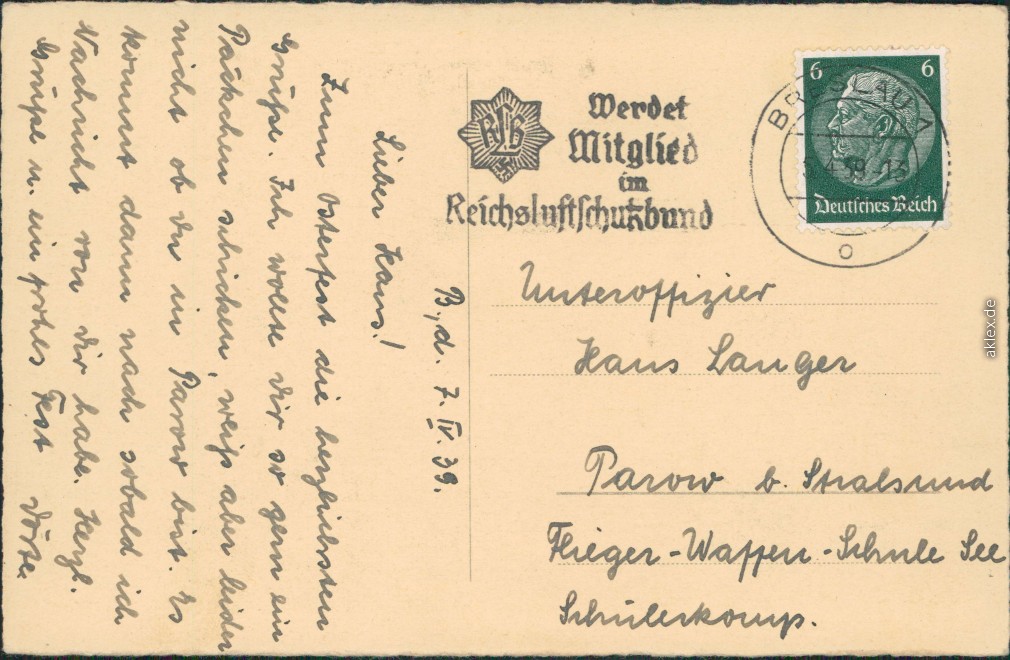 B., d. 7. IV. 39.
Lieber Hans!
Zum Osterfest die herzlichsten
Grüße. Ich wollte dir so gern ein
Päckchen schicken, weiß aber leider
nicht ob du in Parow bist. Es
kommt dann nach sobald ich
Nachricht von dir habe. Herzl.
Grüße u. ein frohes Fest Dörte.
RLB
Werdet
Mitglied
im
Reichsluftschutzbund
BRESLAU
4.39.-13
o
6 6
Deutsches Reich
Unteroffizier
Hans Langer
Parow b. Stralsund
Flieger-Waffen-Schule See
Schülerkomp.
aklex.de